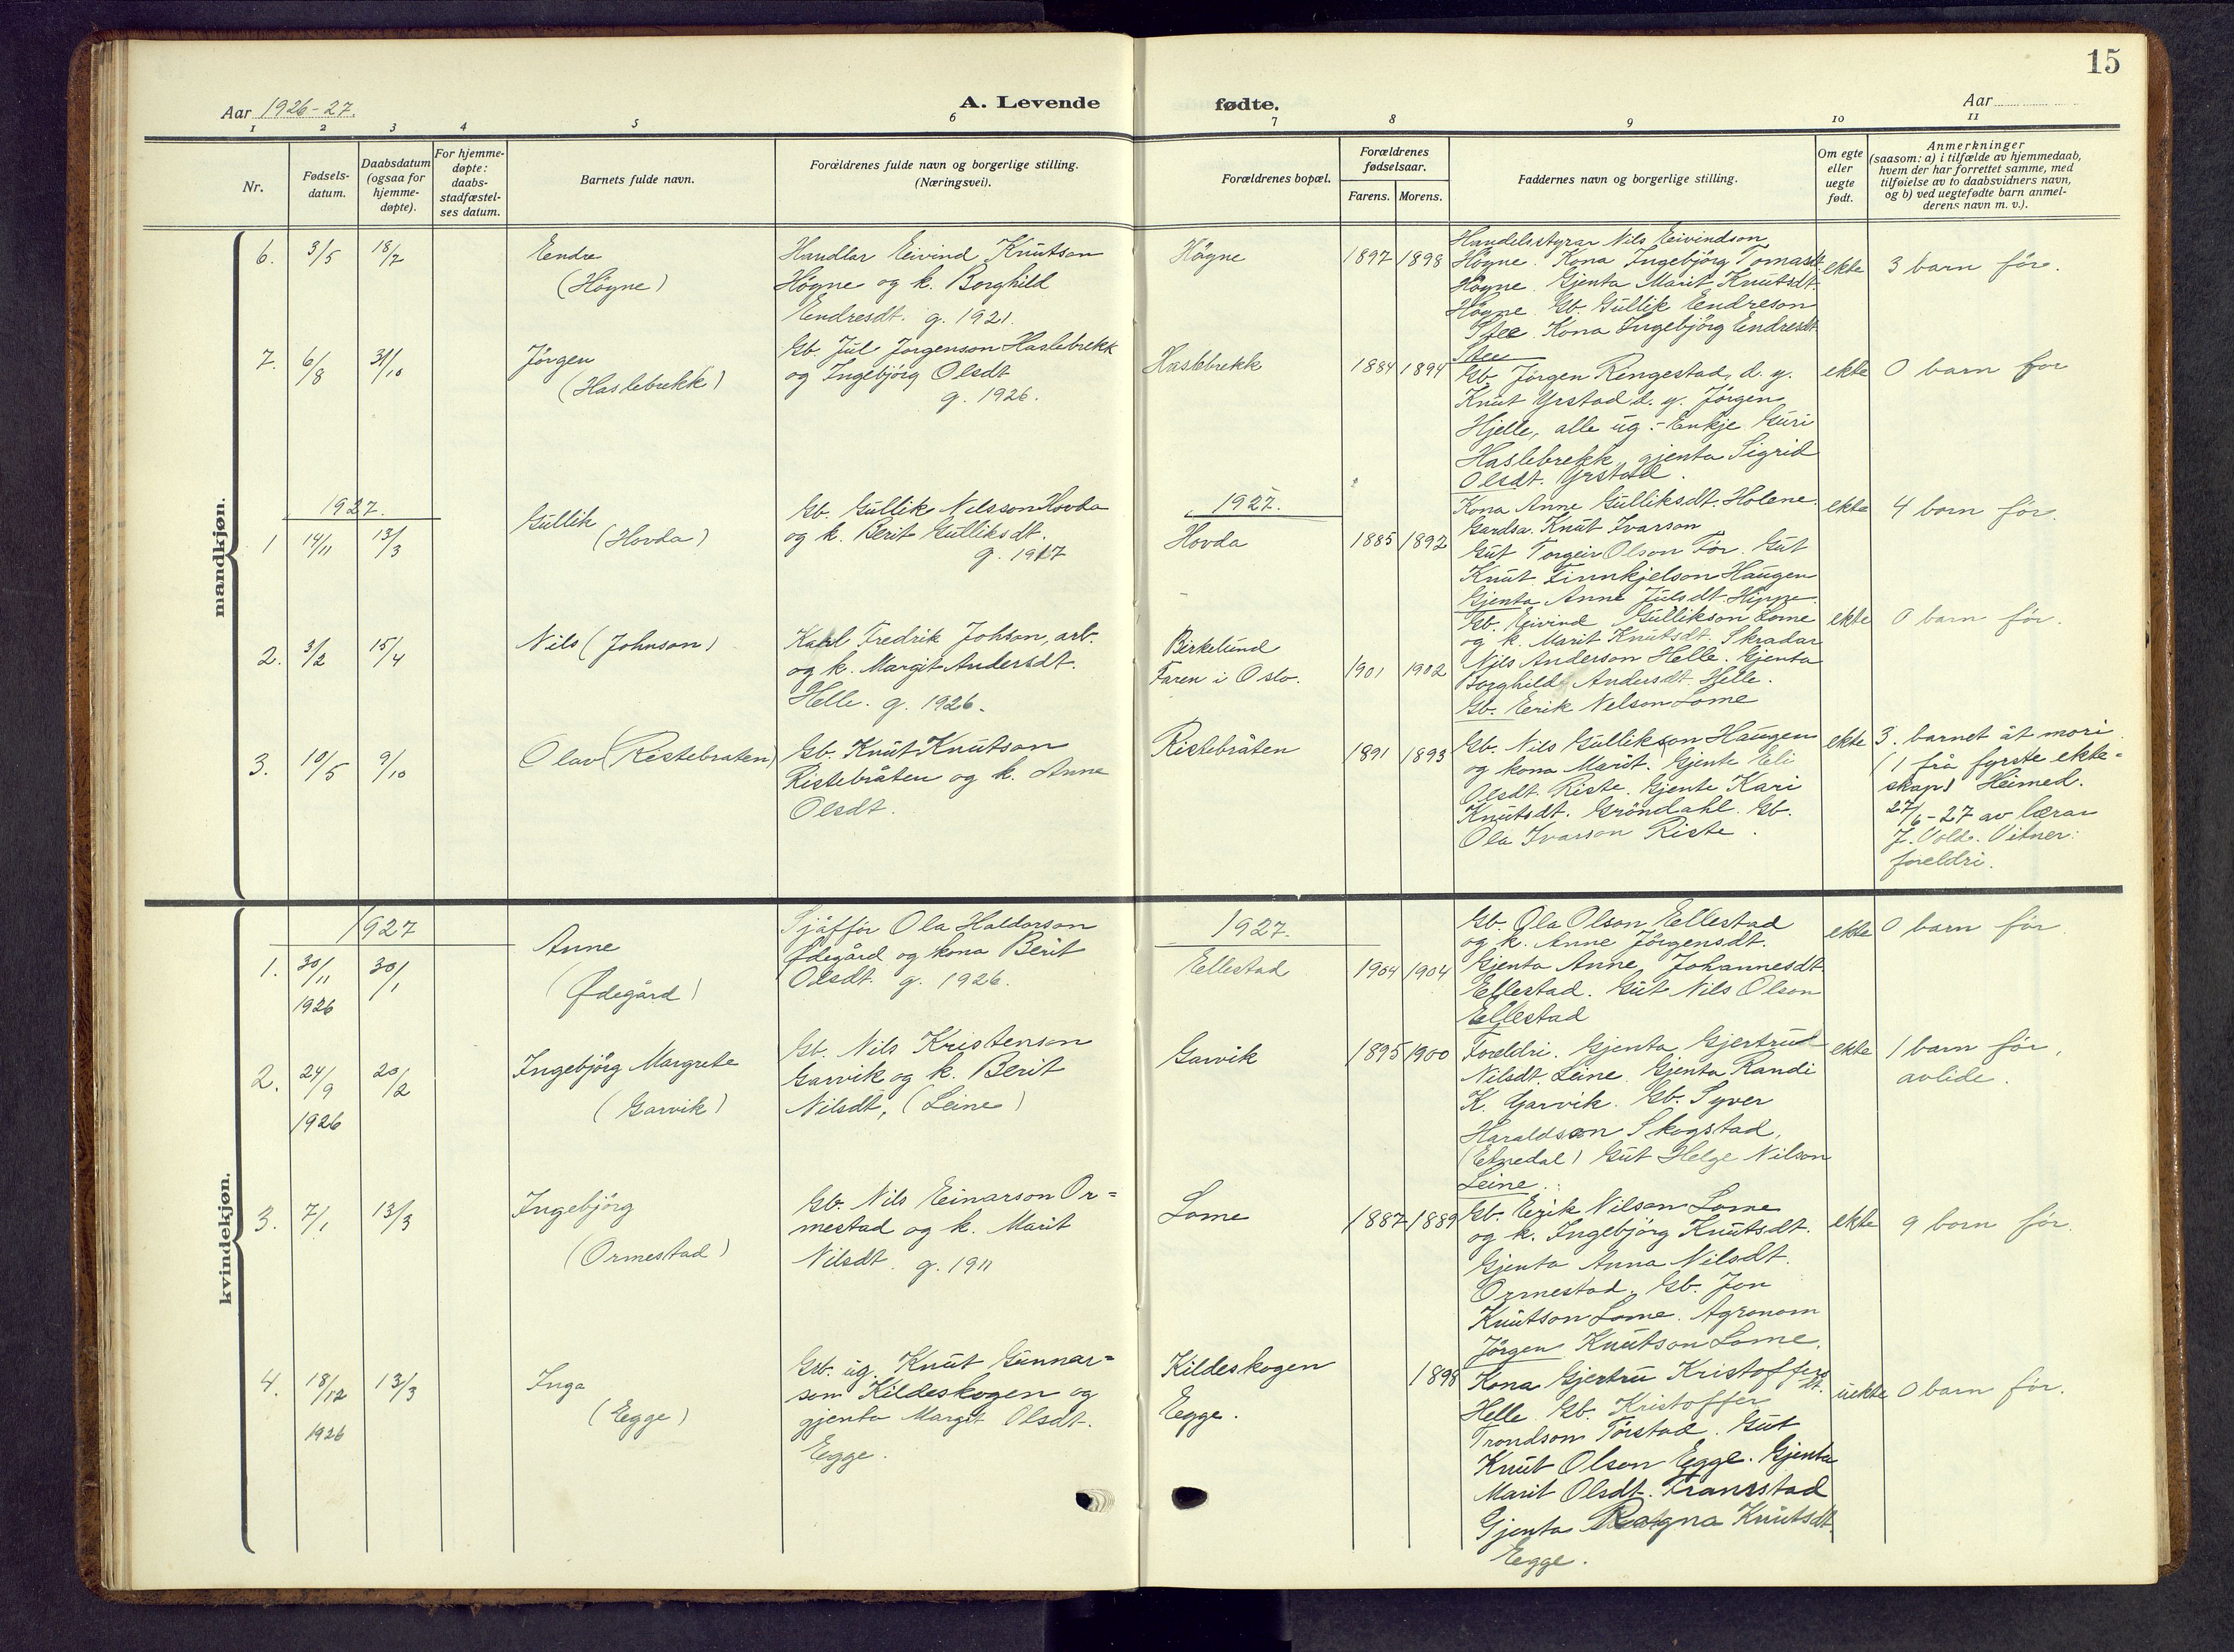 15
Aar 1926-27.
A. Levende
fødte.
Aar
1
2
3
4
5
6
7
8
9
10
11
Nr.
Fødsels-
datum.
Daabsdatum
(ogsaa for
hjemme-
døpte).
For hjemme-
døpte:
daabs-
stadfæstel-
ses datum.
Barnets fulde navn.
Forældrenes fulde navn og borgerlige stilling.
(Næringsvei).
Forældrenes bopæl.
Forældrenes
fødselsaar.
Farens.
Morens.
Faddernes navn og borgerlige stilling.
Om egte
eller
uegte
født.
Anmerkninger
(saasom: a) i tilfælde av hjemmedaab,
hvem der har forrettet samme, med
tilføielse av to daabsvidners navn,
og b) ved uegtefødte barn anmel-
derens navn m. v.).
mandkjøn.
6.
3/5
18/7
Endre
(Høyne)
Handlar Eivind Knutson
Høyne og k. Borghild
Endresdt. g. 1921.
Høyne
1897
1898
Handelsstyrar Nils Eivindson
Høyne. Kona Ingebjørg Tomasdt.
Høyne. Gjenta Marit Knutsdt.
Høyne. Gb. Gullik Endreson
Stee. Kona Ingebjørg Endresdt.
Stee
ekte
3 barn før.
7.
6/8
31/10
Jørgen
(Haslebrekk)
Gb. Jul Jørgenson Haslebrekk
og Ingebjørg Olsdt
g. 1926.
Haslebrekk
1884
1894
Gb. Jörgen Rengestad, d. y.
Knut Yrstad d. y. Jörgen
Hjelle, alle ug. - Enkje Guri
Haslebrekk, gjenta Sigrid
Olsdt. Yrstad.
ekte
0 barn før
1927.
1
14/11
13/3
Gullik
(Hovda)
Gb. Gullik Nilsson Hovda
og k. Berit Gulliksdt.
g. 1917
1927.
Hovda
1885
1892
Kona Anne Gulliksdt. Holene.
Gardsa. Knut Ivarson
Gut Torgeir Olson Tør. Gut
Knut Finnkjelson Haugen
Gjenta Anne Julsdt. Hippe.
ekte
4 born før.
2.
3/2
15/4
Nils (Johnson)
Karl Fredrik Johson, arb.
og k. Margit Andersdt.
Helle. g. 1926.
Birkelund
Faren i Oslo.
1901
1902
Gb. Eivind Gullikson Lome
og k. Marit Knutsdt. Skradar
Nils Anderson Helle. Gjenta
Borghild Andersdt. Helle.
Gb. Eerik Nelson Lome
ekte
0 barn før.
3.
10/5
9/10
Olav (Ristebråten)
Gb. Knut Knutson
Ristebråten og k. Anne
Olsdt.
Ristebråten
1891
1893
Gb. Nils Gullikson Haugen
og kona Marit. Gjente Eli
Olsdt. Riste. Gjente Kari
Knutsdt. Gröndahl. Gb.
Ola Ivarson Riste.
ekte
3. barnet åt mori
(1 frå fyrste ekte-
skap) Heimed.
27/6-27 av lærar
J. Vold. Vitner:
foreldri.
kvindekjøn.
1927
1.
30/11
1926
30/1
Anne
(Ødegård)
Sjåffør Ola Haldorson
Ødegård og kona Berit
Olsdt. g. 1926.
1927.
Ellestad
1904
1904
Gb. Ola Olson Ellestad
og k. Anne Jörgensdt.
Gjenta Anne Johannesdt.
Ellestad. Gut Nils Olson
Ellestad
ekte
0 barn før.
2.
24/9
1926
20/2
Ingebjørg Margrete
(Garvik)
Gb. Nils Kristenson
Garvik og k. Berit
Nilsdt, (Leine)
Garvik
1895
1900
Foreldri. Gjenta Gjertrud
Nilsdt. Leine. Gjenta Randi
K. Garvik. Gb. Syver
Haraldson Skogstad,
(Etnedal) Gut Helge Nilson
Leine.
ekte
1 barn før,
avlide.
3.
7/1
13/3
Ingebjörg
(Ormestad)
Gb. Nils Einarson Or=
mestad og k. Marit
Nilsdt. g. 1911
Lome
1887
1889
Gb. Eerik Nilson Lome
og k. Ingebjörg Knutsdt.
Gjenta Anna Nilsdt.
Ormestad. Gb. Jon
Knutson Lome. Agronom
Jörgen Knutson Lome.
ekte
9 born før.
4.
18/12
1926
13/3
Inga
(Egge)
Grb. ug. Knut Gunnar=
son Kildeskogen og
gjenta Margit Olsdt.
Egge.
Kildeskogen
Egge.
1898
Kona Gjertru Kristoffersdt.
Helle. Gb. Kristoffer
Trondson Törstad. Gut
Knut Olson Egge. Gjenta
Marit Olsdt. Framstad
Gjenta Ragna Knutsdt.
Egge.
uekte
0 barn før.